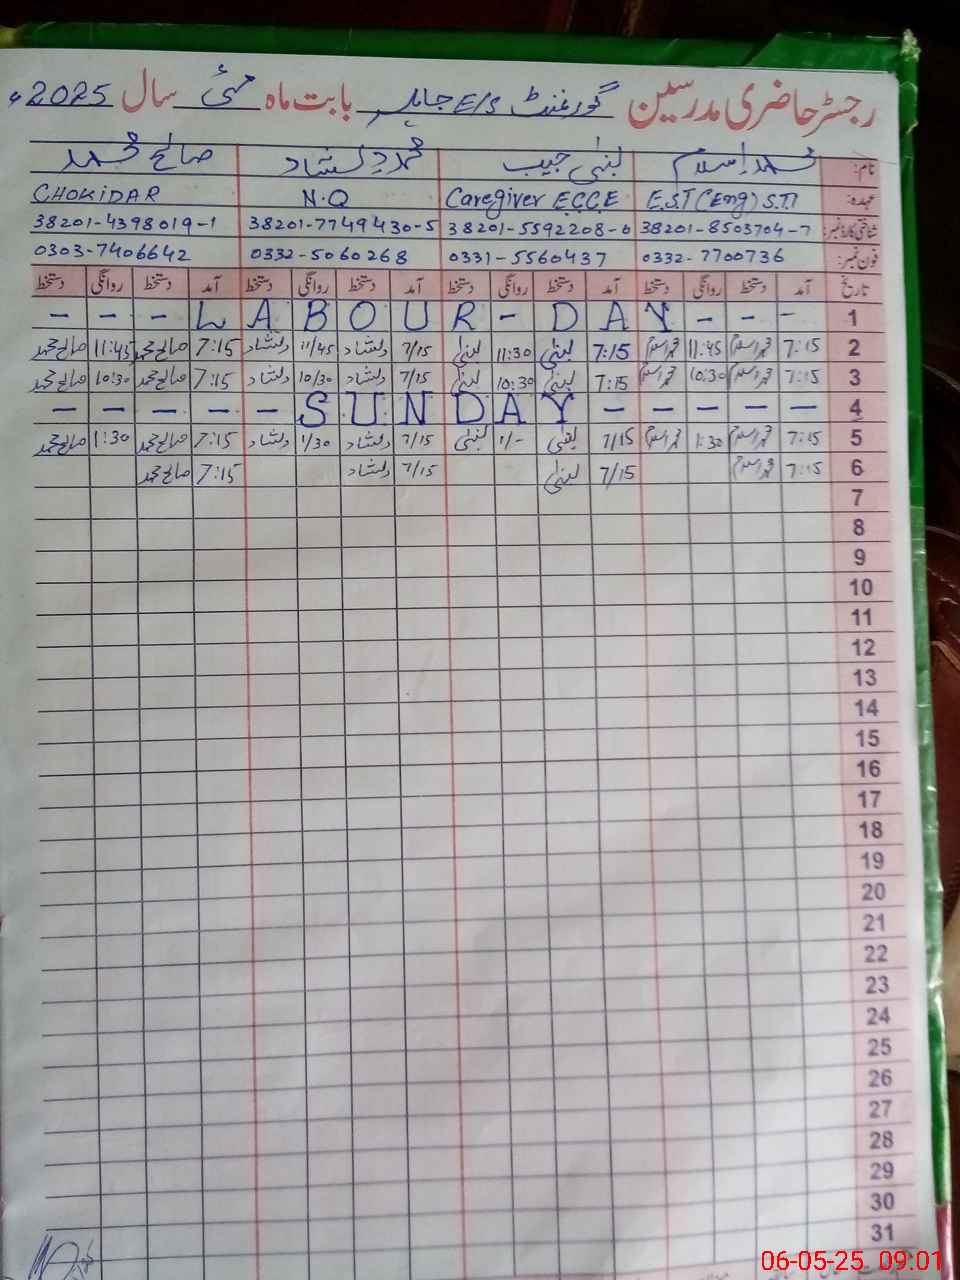 رجسٹر حاضری مدرسین گورنمنٹ E/S جابلر بابت ماہ مئی سال 2025ء
نام: محمد اسلام لبنیٰ حبیب محمد دلشاد صالح محمد
عہدہ: E.S.T (Eng) S.T.I Caregiver ECCE N.Q CHOKIDAR
شناختی کارڈ نمبر: 38201-8503704-7 38201-5592208-0 38201-7749430-5 38201-4398019-1
فون نمبر: 0332-7700736 0331-5560437 0332-5060268 0303-7406642
تاریخ آمد دستخط روانگی دستخط آمد دستخط روانگی دستخط آمد دستخط روانگی دستخط آمد دستخط روانگی دستخط
1 - - - LABOUR - DAY - - -
2 7:15 محمد اسلام 11:45 محمد اسلام 7:15 لبنیٰ 11:30 لبنیٰ 7/15 دلشاد 11/45 دلشاد 7:15 صالح محمد 11:45 صالح محمد
3 7:15 محمد اسلام 10:30 محمد اسلام 7:15 لبنیٰ 10:30 لبنیٰ 7/15 دلشاد 10/30 دلشاد 7:15 صالح محمد 10:30 صالح محمد
4 - - - - - SUNDAY - - - - -
5 7:15 محمد اسلام 1:30 محمد اسلام 7/15 لبنیٰ 1/- لبنیٰ 7/15 دلشاد 1/30 دلشاد 7:15 صالح محمد 1:30 صالح محمد
6 7:15 محمد اسلام 7/15 لبنیٰ 7/15 دلشاد 7:15 صالح محمد
7
8
9
10
11
12
13
14
15
16
17
18
19
20
21
22
23
24
25
26
27
28
29
30
31
06-05-25 09:01